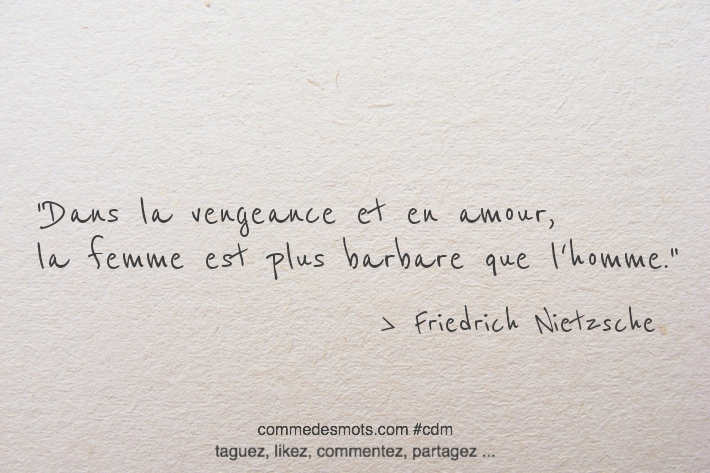 "Dans la vengeance et en amour,
la femme est plus barbare que l'homme."
> Friedrich Nietzsche
commedesmots.com #cdm
taguez, likez, commentez, partagez ...